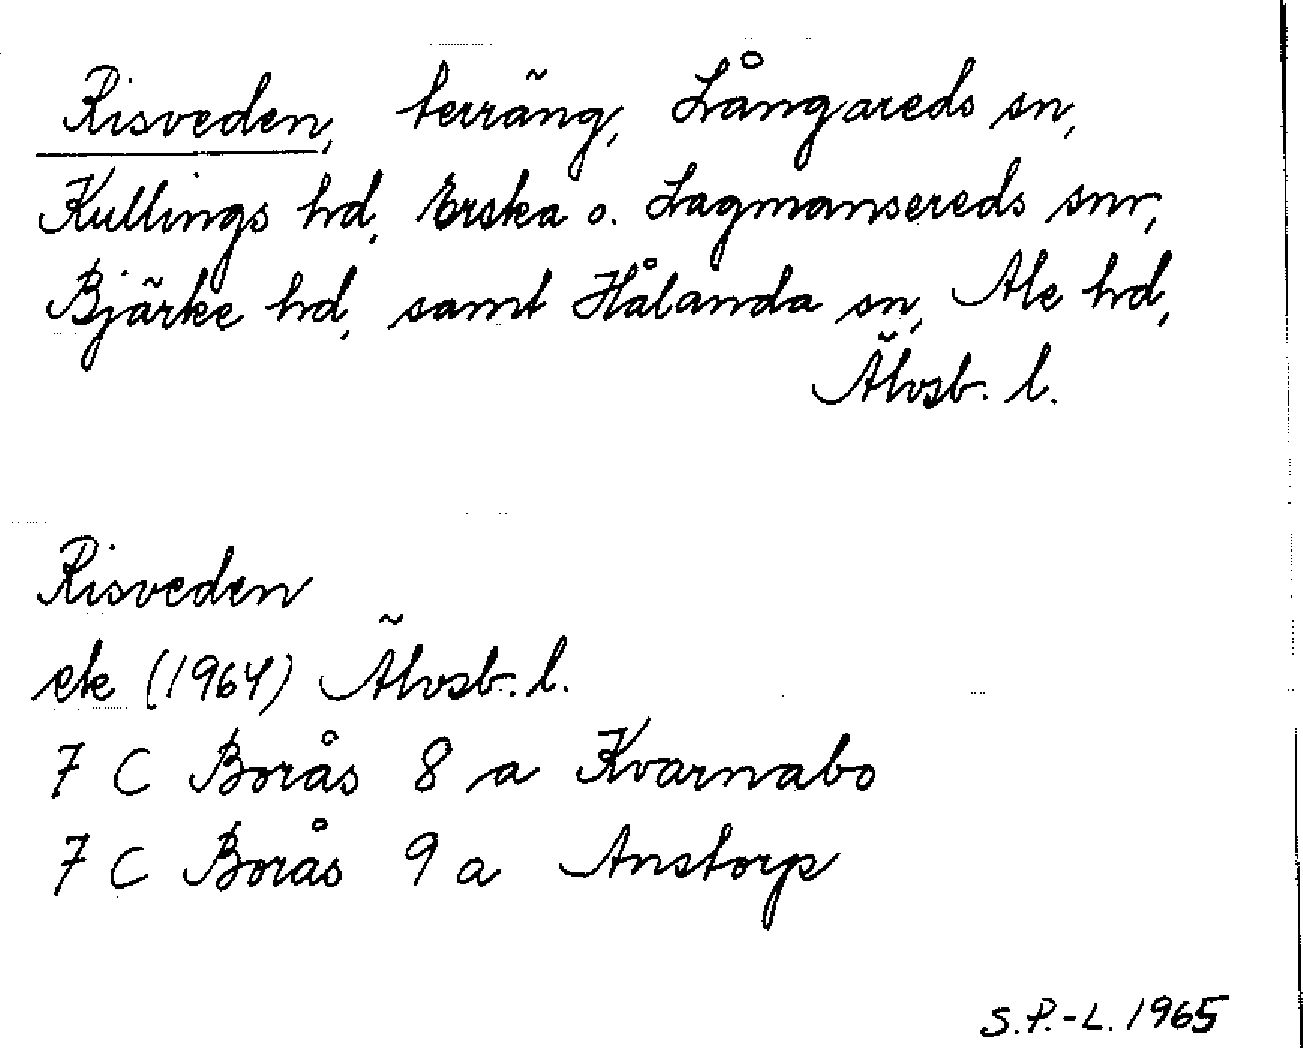 Risveden, terräng, Långareds sn,
Kullings hd, Erska o. Lagmansereds snr,
Bjärke hd, samt Hålanda sn, Ale hd,
Älvsb. l.
Risveden
ek (1964) Älvsb. l.
7 C Borås 8 a Kvarnabo
7 C Borås 9 a Anstorp
S.P.-L. 1965